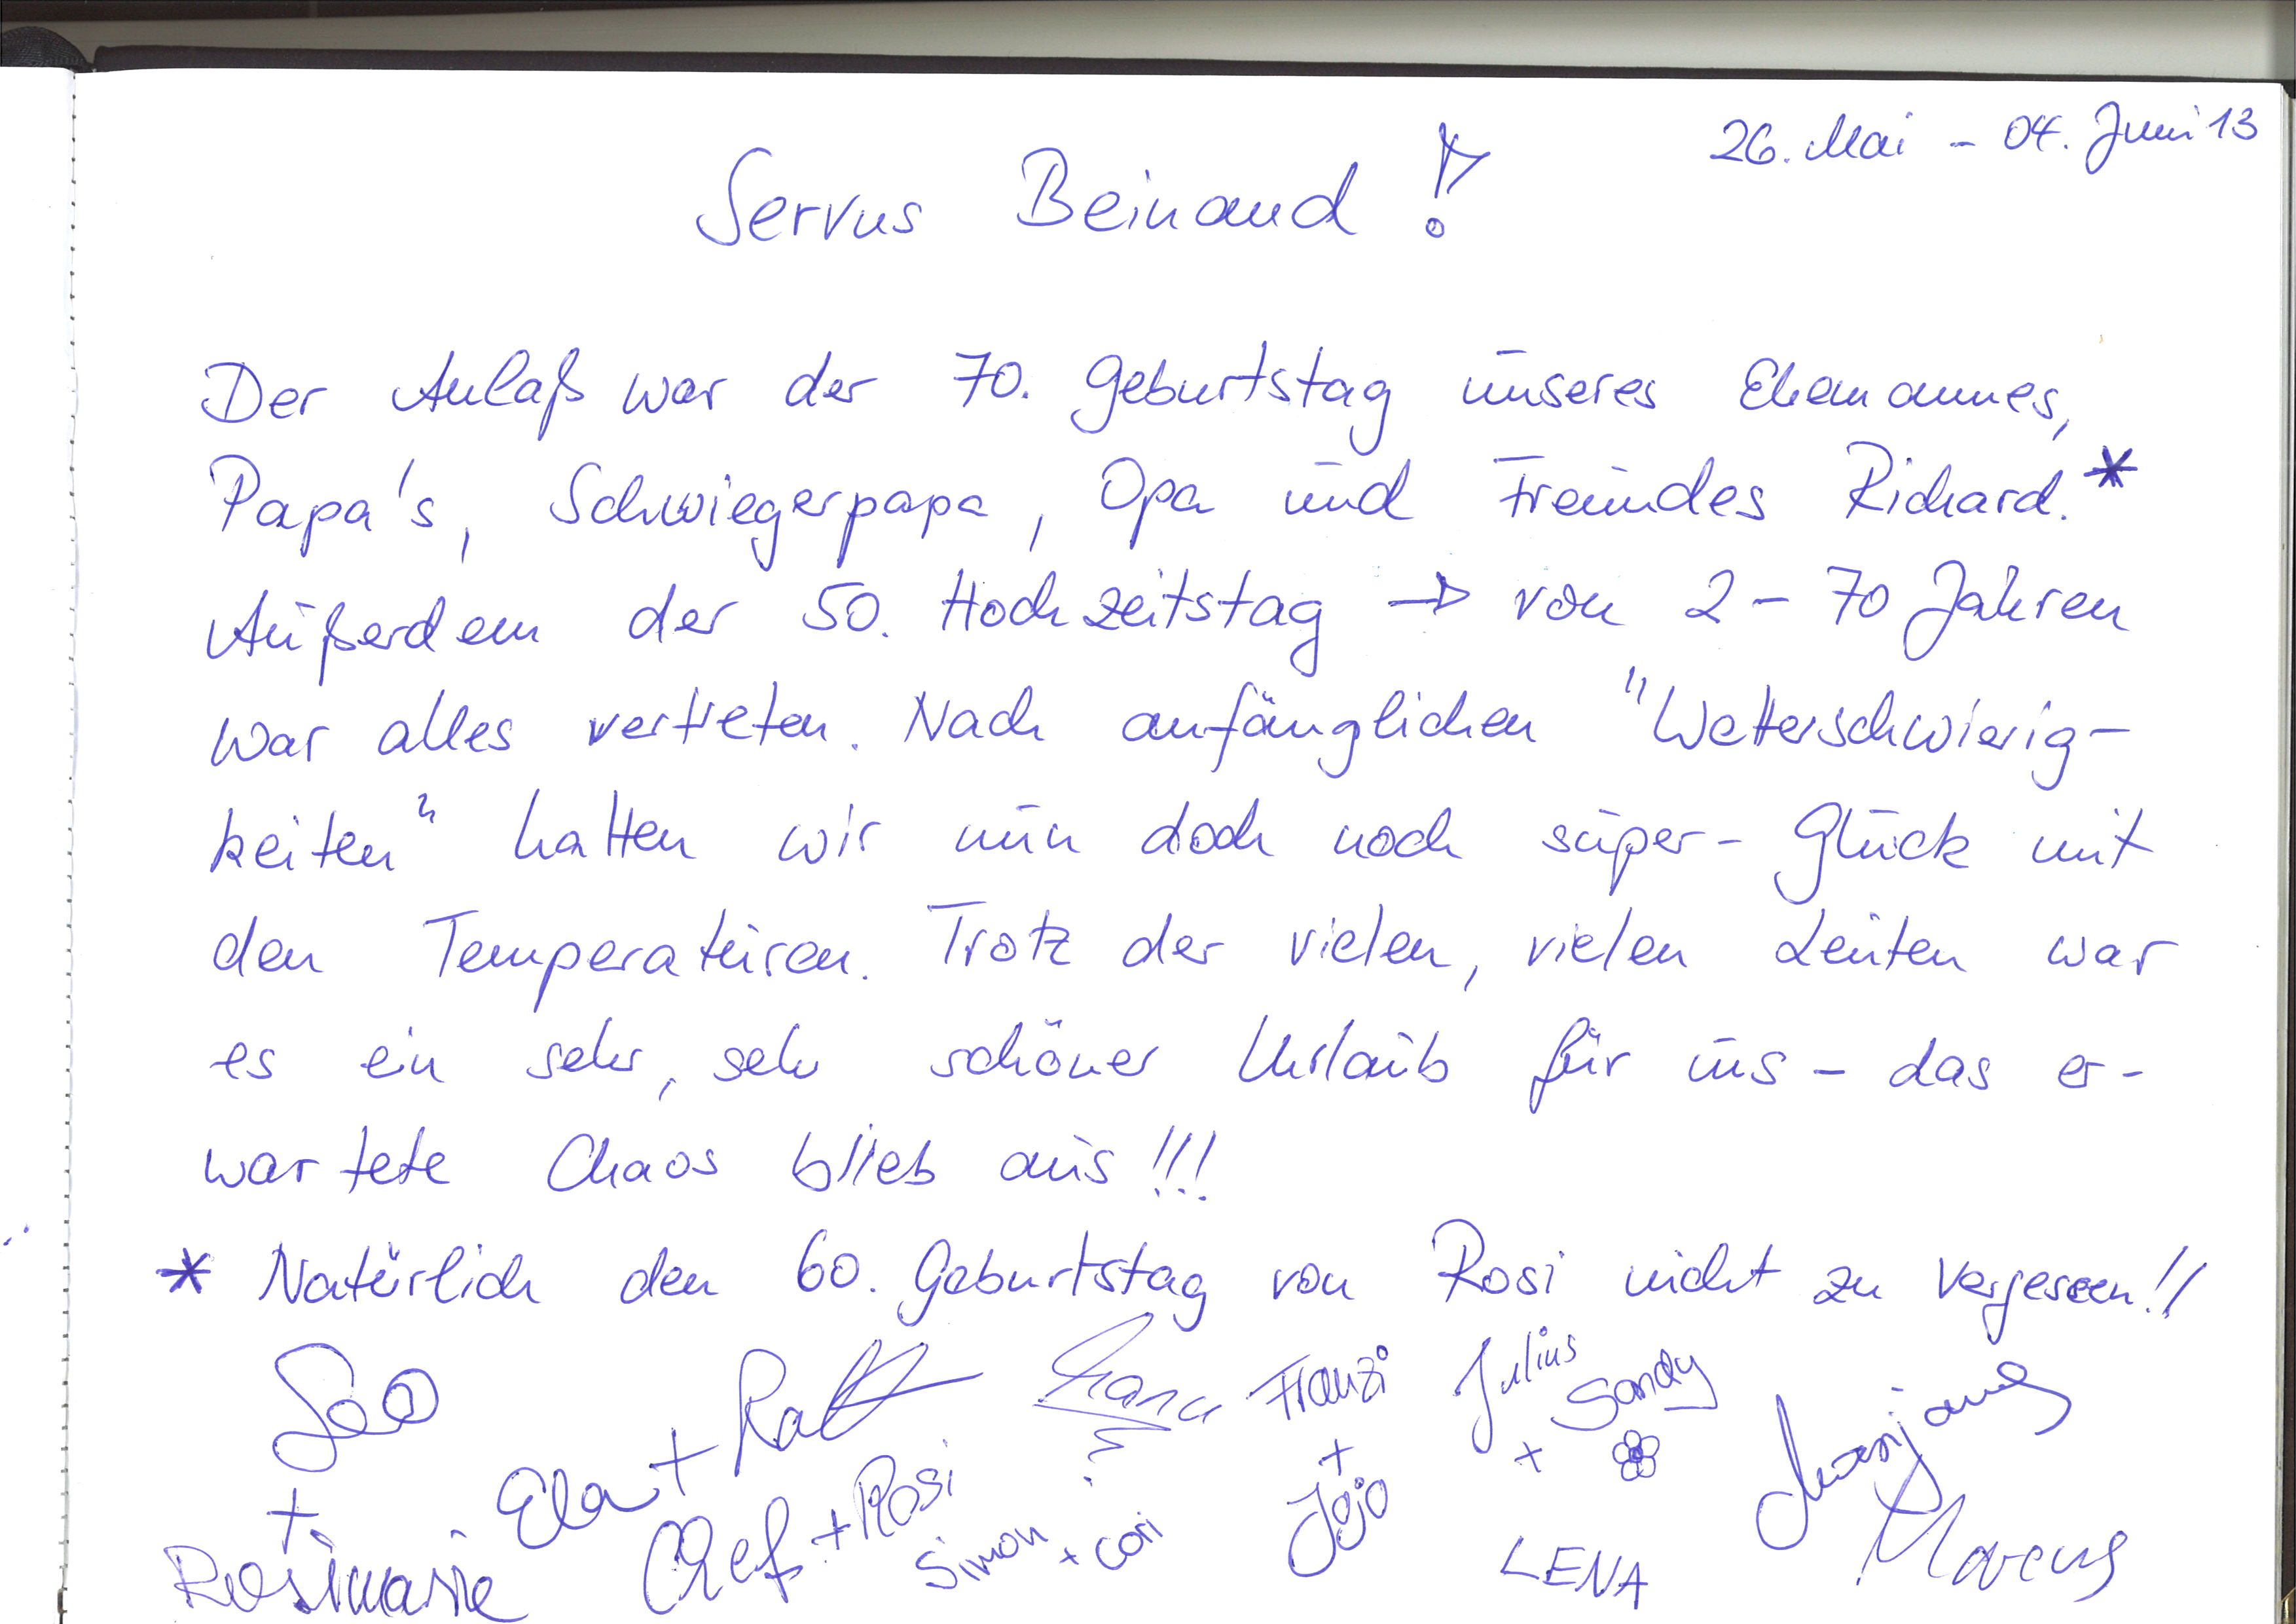 26. Mai - 04. Juni 13
Servus Beinand!
Der Anlaß war der 70. Geburtstag unseres Ehemannes,
Papa's, Schwiegerpapa, Opa und Freundes Richard.*
Außerdem der 50. Hochzeitstag → von 2 - 70 Jahren
war alles vertreten. Nach anfänglichen "Wetterschwierig-
keiten" hatten wir nun doch noch super-Glück mit
den Temperaturen. Trotz der vielen, vielen Leuten war
es ein sehr, sehr schöner Urlaub für uns - das er-
wartete Chaos blieb aus!!!
* Natürlich den 60. Geburtstag von Rosi nicht zu vergessen!!
Leo + Rosimarie
Ela + Ralf
Chef + Rosi
Simon + Cori
Franzi + Jojo
Julius + Sandy
LENA
Marcus